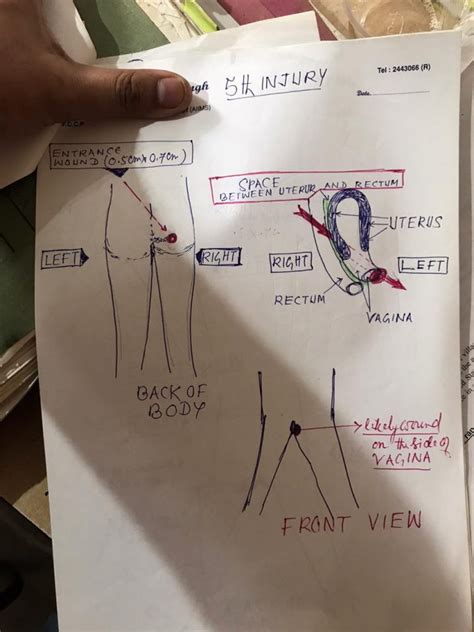 Tel : 2443066 (R)
5th INJURY
Date
(AIIMS)
ENTRANCE
WOUND (0.5cm x 0.7cm)
SPACE
BETWEEN UTERUS AND RECTUM
UTERUS
LEFT
RIGHT
RIGHT
LEFT
RECTUM
VAGINA
BACK OF
BODY
likely wound
on the side of
VAGINA
FRONT VIEW